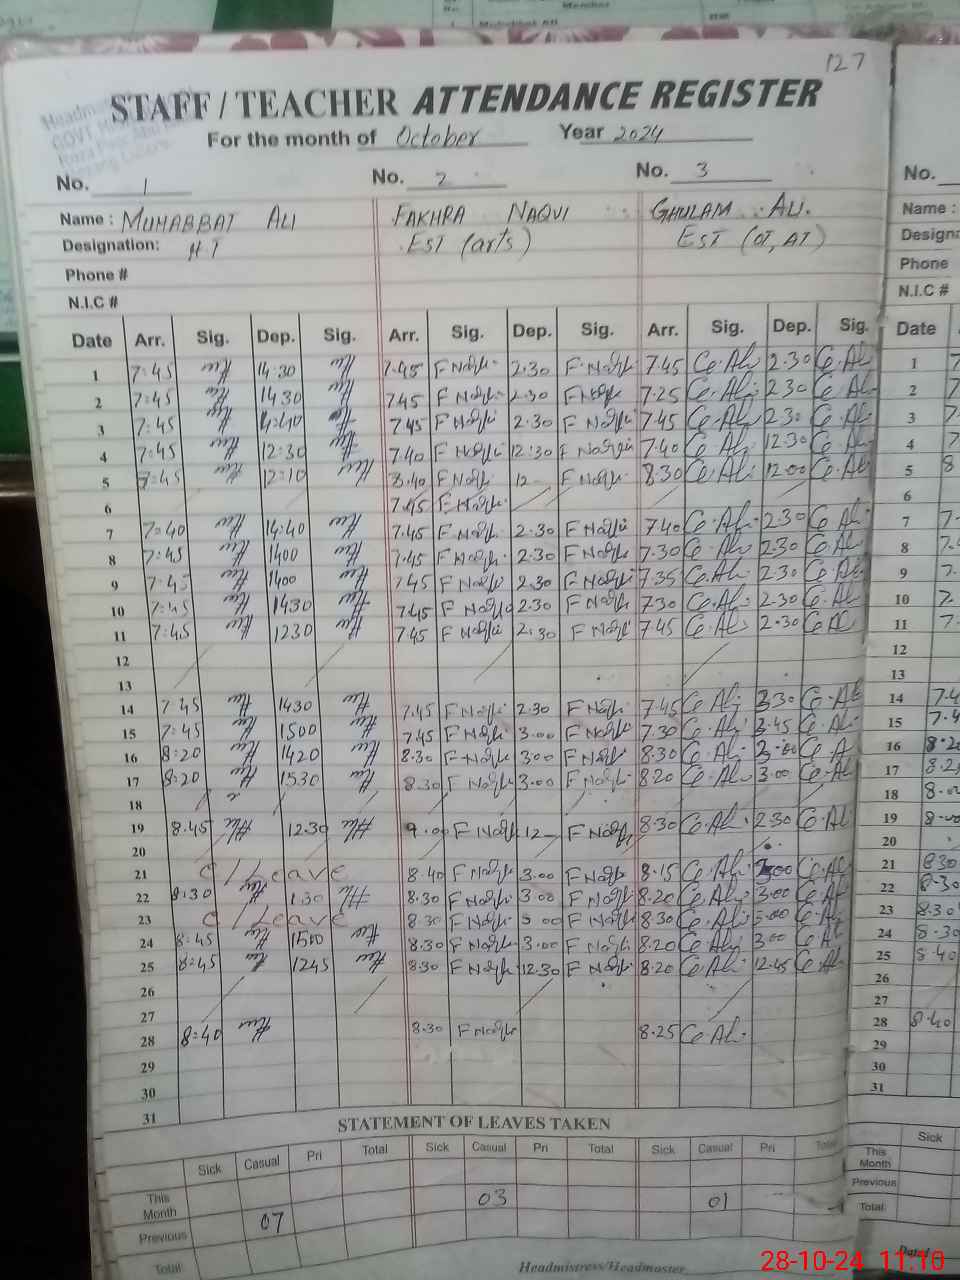 127
STAFF / TEACHER ATTENDANCE REGISTER
For the month of October Year 2024
No. 1 No. 2 No. 3 No.
Name : MUHABBAT ALI FAKHRA NAQVI GHULAM ALI. Name :
Designation: HT EST (arts) EST (OT, AT)
Phone # Phone
N.I.C # N.I.C #
Date Arr. Sig. Dep. Sig. Arr. Sig. Dep. Sig. Arr. Sig. Dep. Sig. Date
1 7:45 14:30 7.45 F Naqvi 2.30 F Naqvi 7.45 2.30 1
2 7:45 1430 7.45 F Naqvi 2.30 F Naqvi 7.25 2.30 2
3 7:45 14:40 7.45 F Naqvi 2.30 F Naqvi 7.45 2.30 3
4 7:45 12:30 7.40 F Naqvi 12.30 F Naqvi 7.40 12.30 4
5 7:45 12:10 8.40 F Naqvi 12 F Naqvi 8.30 12.00 5 8
6 7.45 F Naqvi 6
7 7:40 14:40 7.45 F Naqvi 2.30 F Naqvi 7.40 2.30 7
8 7:45 1400 7.45 F Naqvi 2.30 F Naqvi 7.30 2.30 8
9 7:45 1400 7.45 F Naqvi 2.30 F Naqvi 7.35 2.30 9
10 7:45 1430 7.45 F Naqvi 2.30 F Naqvi 7.30 2.30 10
11 7:45 1230 7.45 F Naqvi 2.30 F Naqvi 7.45 2.30 11
12 12
13 13
14 7:45 1430 7.45 F Naqvi 2.30 F Naqvi 7.45 3.30 14 7.4
15 7:45 1500 7.45 F Naqvi 3.00 F Naqvi 7.30 3.45 15 7.4
16 8:20 1420 8.30 F Naqvi 3.00 F Naqvi 8.30 3.00 16 8.20
17 8:20 1530 8.30 F Naqvi 3.00 F Naqvi 8.20 3.00 17 8.2
18 18 8.00
19 8.45 12.30 9.00 F Naqvi 12 F Naqvi 8.30 2.30 19 8.00
20 20
21 C/Leave 8.40 F Naqvi 3.00 F Naqvi 8.15 3.00 21 8.30
22 8:30 1.30 8.30 F Naqvi 3.00 F Naqvi 8.20 3.00 22 8.30
23 C/Leave 8.30 F Naqvi 3.00 F Naqvi 8.30 3.00 23 8.30
24 8:45 1500 8.30 F Naqvi 3.00 F Naqvi 8.20 3.00 24 8.30
25 8:45 1245 8.30 F Naqvi 12.30 F Naqvi 8.20 12.45 25 8.40
26 26
27 27
28 8:40 8.30 F Naqvi 8.25 28 8.40
29 29
30 30
31 31
STATEMENT OF LEAVES TAKEN
Sick Casual Pri Total Sick Casual Pri Total Sick Casual Pri Total Sick
This Month 03 01 This Month
Previous 07 Previous
Total Total
Headmistress/Headmaster
Dated
28-10-24 11.10